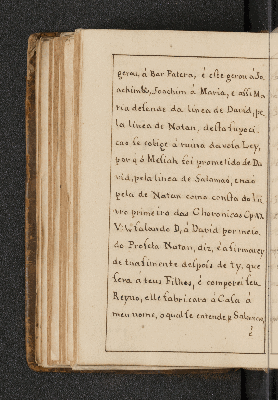 gerou á Bar Patera, é este gerou á Jo
achim &, Joachim á Maria, e assi Ma
ria desende da linea de David, pe
la linea de Natan, desta supoci
cao se colige á ruina davosa Ley,
por q ó Messiah foi prometido de Da
vid, pela linea de Salamaõ, e naó
pela de Natan como consta do Li
vro primeiro das Choronicas Cp
V. falando D. á David por meio
do Profeta Natan, diz, é afirma
de tua simente despois de ty, que
sera á teus Filhos, é comporei seu
Reyno, elle fabricara á Casa á
meu nome, o qual se entende p Salamaõ,
é